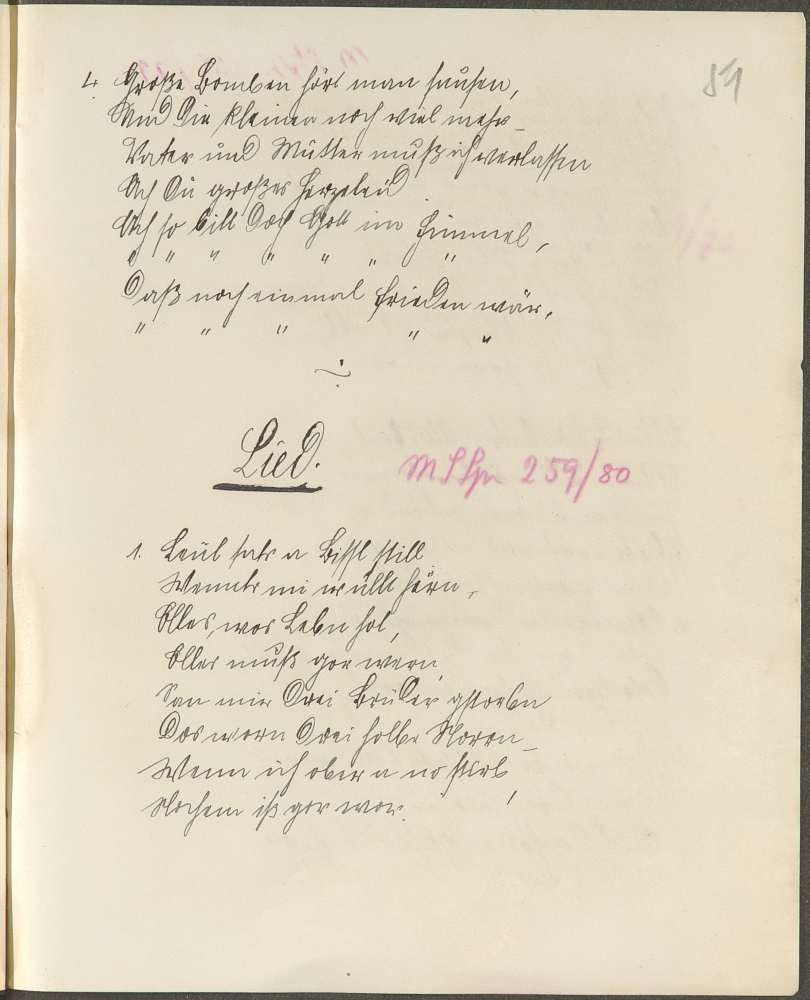 51
4. Große Bomben hört man sausen,
Und die kleinen noch viel mehr
Vater und Mutter muß ich verlassen
Ach du großes Herzeleid
Ach so bitt doch Gott im Himmel,
" " " " " " "
Daß noch einmal Frieden wär,
" " " " "
Lied.
259/80
1. Leut sats a Bissl still
Wennts mi wüllt hörn,
Olles, wos Lebn hot,
Olles muß gor wern,
San mir drei Brüder gstorbn
Dos worn drei holbe Norrn
Wenn ich ober a no stirb,
Nochem iß gor wor.